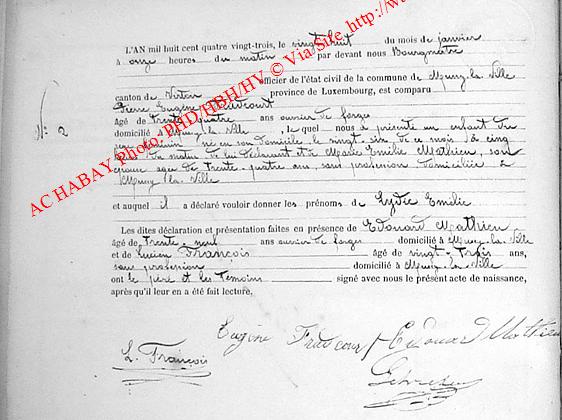 L'AN mil huit cent quatre vingt-trois, le vingt huit du mois de janvier
à onze heures du matin par devant nous Bourgmestre
officier de l'état civil de la commune de Mussy-la-Ville
canton de Virton province de Luxembourg, est comparu
Pierre Eugène
âgé de trente quatre ans ouvrier de forges
domicilié à Mussy la Ville, lequel nous a présenté un enfant du
sexe féminin né en son domicile, le vingt six de ce mois à cinq
du matin de lui déclarant et de Marie Emilie Mathieu, son
épouse âgée de trente-quatre ans, sans profession domiciliée à
Mussy la Ville
et auquel il a déclaré vouloir donner les prénoms de Lydie Emélie
Les dites déclaration et présentation faites en présence de Edouard Mathieu
âgé de trente-neuf ans ouvrier de forges domicilié à Mussy-la-Ville
et de Lucien François âgé de vingt-trois ans,
sans profession domicilié à Mussy-la-Ville
ont le père et les témoins signé avec nous le présent acte de naissance,
après qu'il leur en a été fait lecture,
Eugène Edouard Mathieu
L. François
N° 2
AC HABAY Photo: PHD/HBH/HV © Via Site http://w